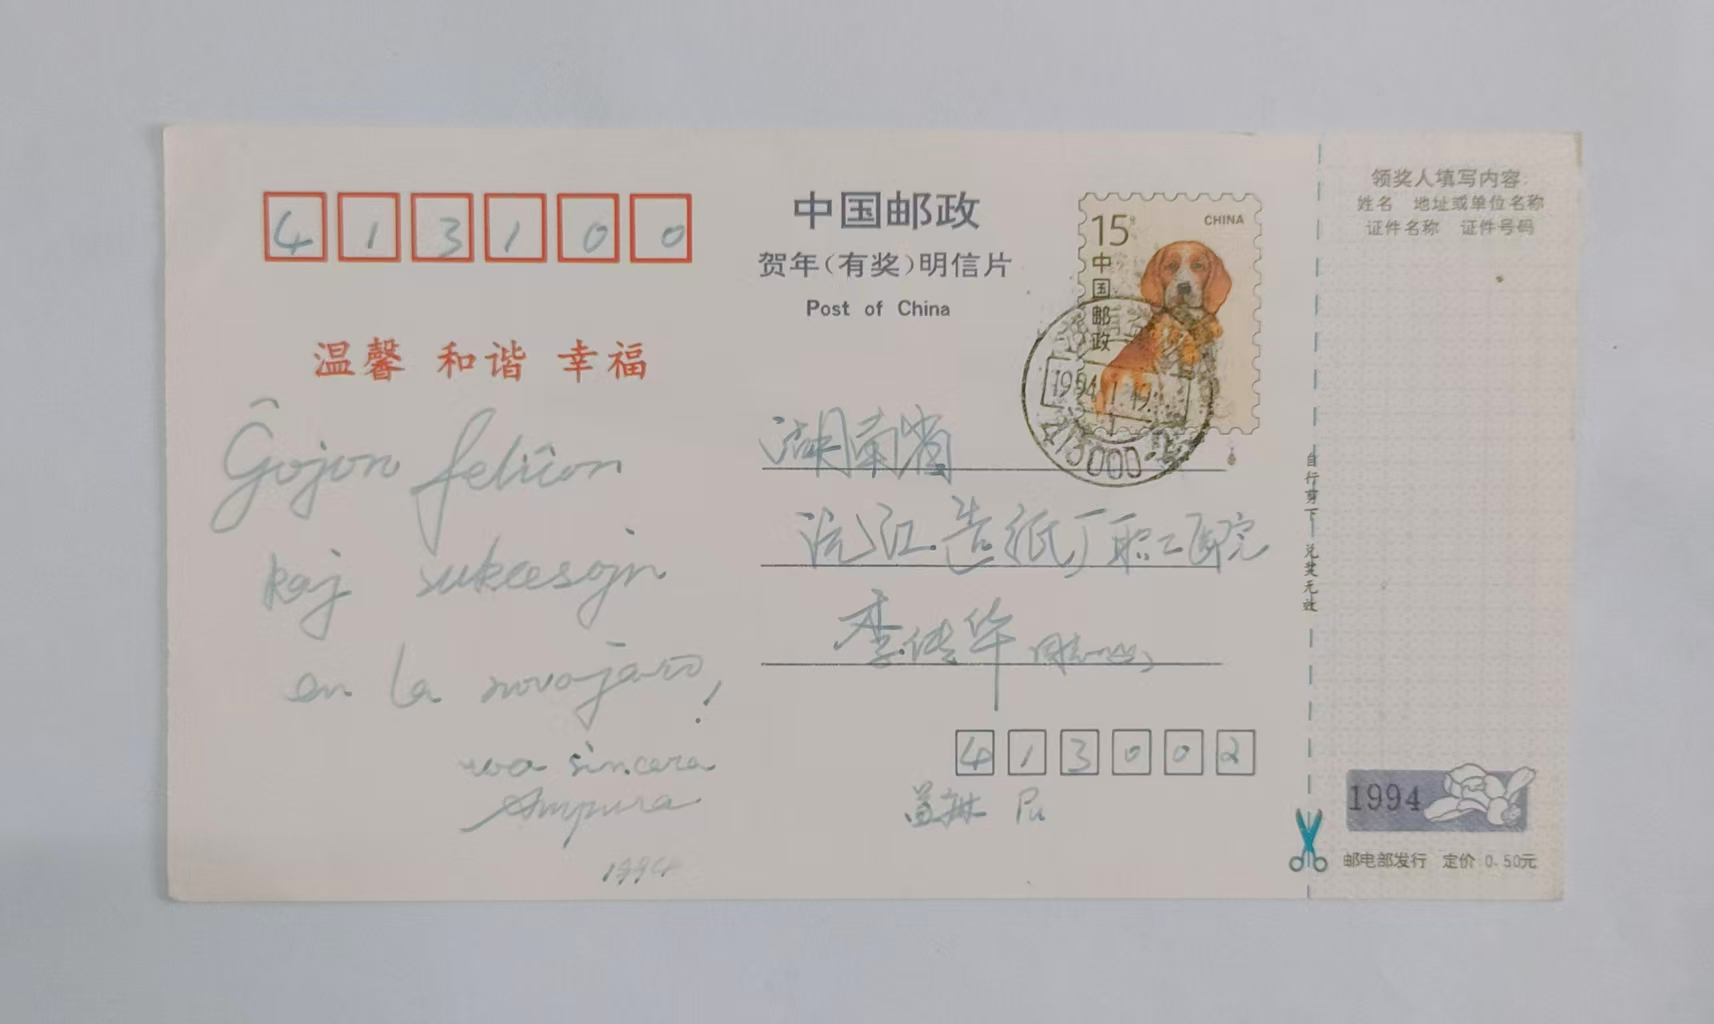 413100
中国邮政
贺年（有奖）明信片
Post of China
15分
CHINA
中国邮政
1994.1.19.
413000
温馨 和谐 幸福
Ĝojon feliĉon
kaj sukcesojn
en la novajaro!
via sincera
1994
湖南省
沅江造纸厂职工医院
李传华 同志
413002
领奖人填写内容
姓名 地址或单位名称
证件名称 证件号码
自行剪下 兑奖无效
1994
邮电部发行 定价 0.50元